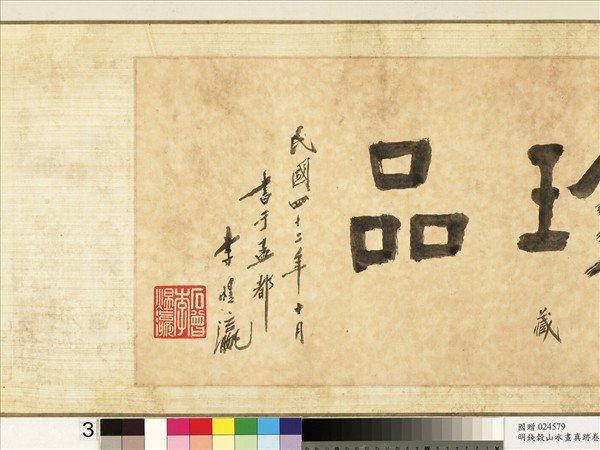 珍品
藏
民國四十二年十月
書于孟都
李煜瀛
石曾
李
煜瀛
3
國贈 024579
明錢穀山水畫真跡卷